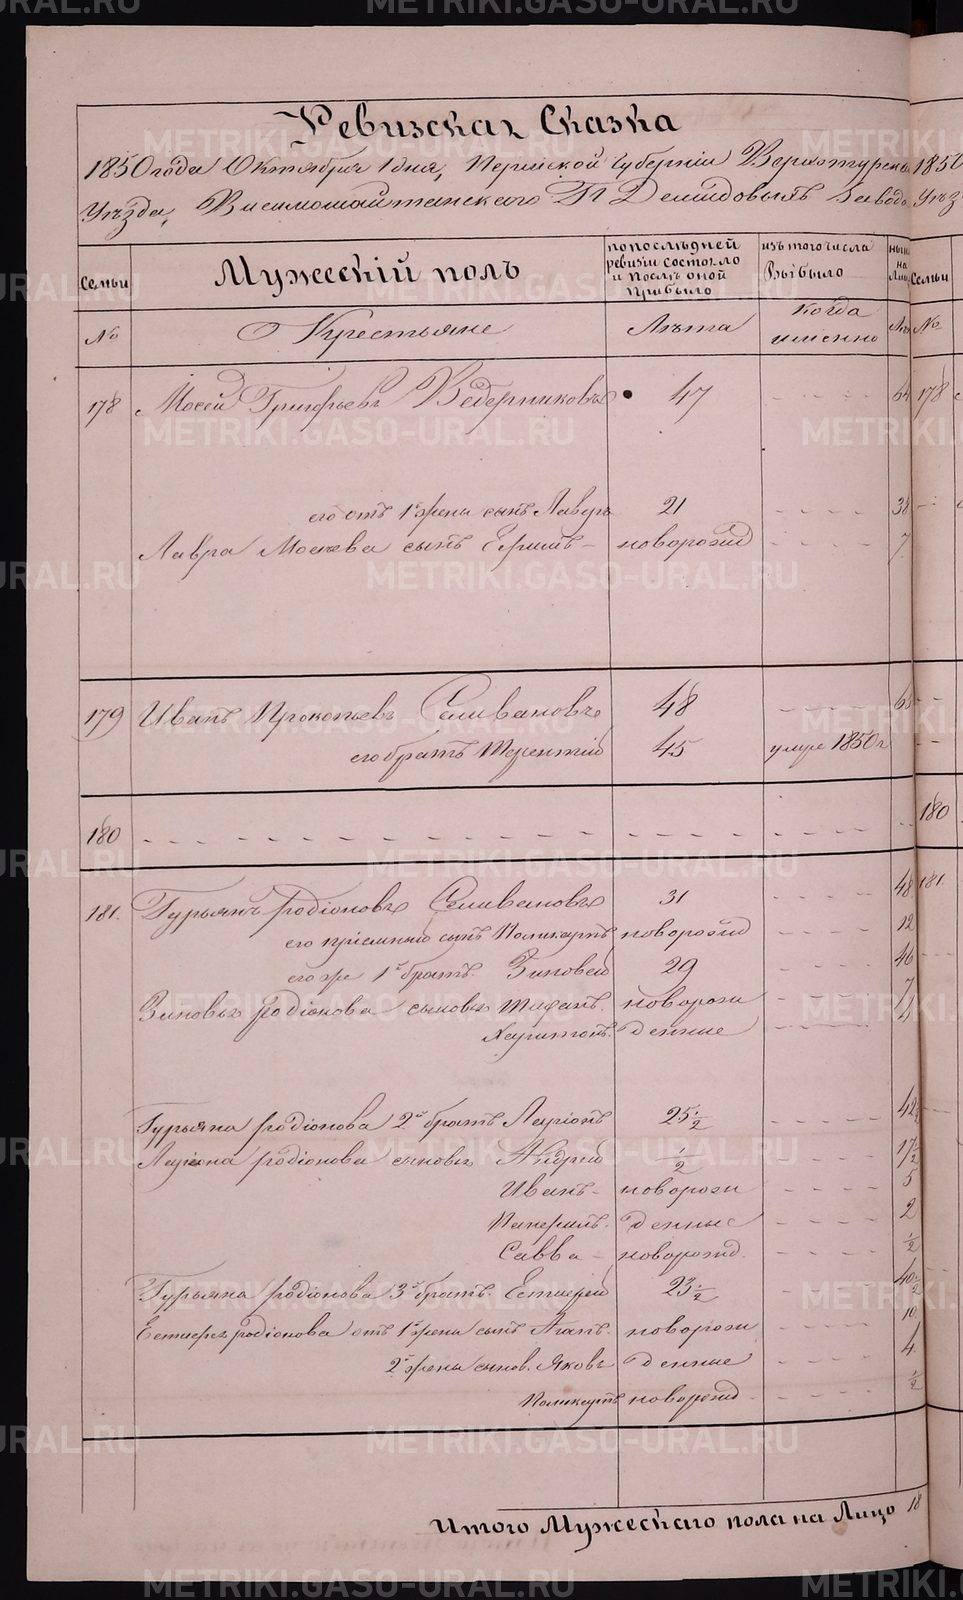 Ревизская Сказка
1850 года Октября 1 дня, Пермской Губернiи Верхотурска
Уѣзда, Висимошайтанскаго Гг Демидовыхъ завода
Семьи
Мужескiй полъ
по послѣдней ревизiи состояло и послѣ оной прибыло
изъ того числа выбыло
ныне на лицо
№
Крестьяне
Лѣта
когда именно
Лѣ
178 Мосей Григорьевъ Ведерниковъ 47 - - - - 64
его отъ 1й жены сынъ Лавръ 21 - - - - 38
Лавра Мосеева сынъ Ермилъ - новорожд - - - - 7
179 Иванъ Прокопьевъ Селивановъ 48 - - - - 65
его братъ Терентiй 45 умре 1850 г
180 - - - - - - - - - -
181. Гурьянъ Родiоновъ Селивановъ 31 - - - - 48
его прiемный сынъ Поликарпъ новорожд - - - - 12
его же 1й братъ Зиновей 29 - - - - 46
Зиновья Родiонова сыновья новорож - - - - 7
Харитонъ. денные - - - - 4
Гурьяна Родiонова 2й братъ Ларiонъ 25 1/2 - - - - 42 1/2
Ларiона Родiонова сыновья Андрей 1/2 - - - - 17 1/2
Иванъ - новорож - - - - 5
денные - - - - 2
Савва - новорожд. - - - - 1/2
Гурьяна Родiонова 3й братъ. Евстиѳей 23 1/2 - - - - 40 1/2
Родiонова отъ 1й жены сынъ Агапъ. новорож - - - - 10
2й жены сынов. Яковъ денные - - - - 4
Поликарпъ новорожд - - - - 1/2
Итого Мужескаго пола на Лицо 18
1850
Уѣз
Семьи
№
178
180
181.
METRIKI.GASO-URAL.RU